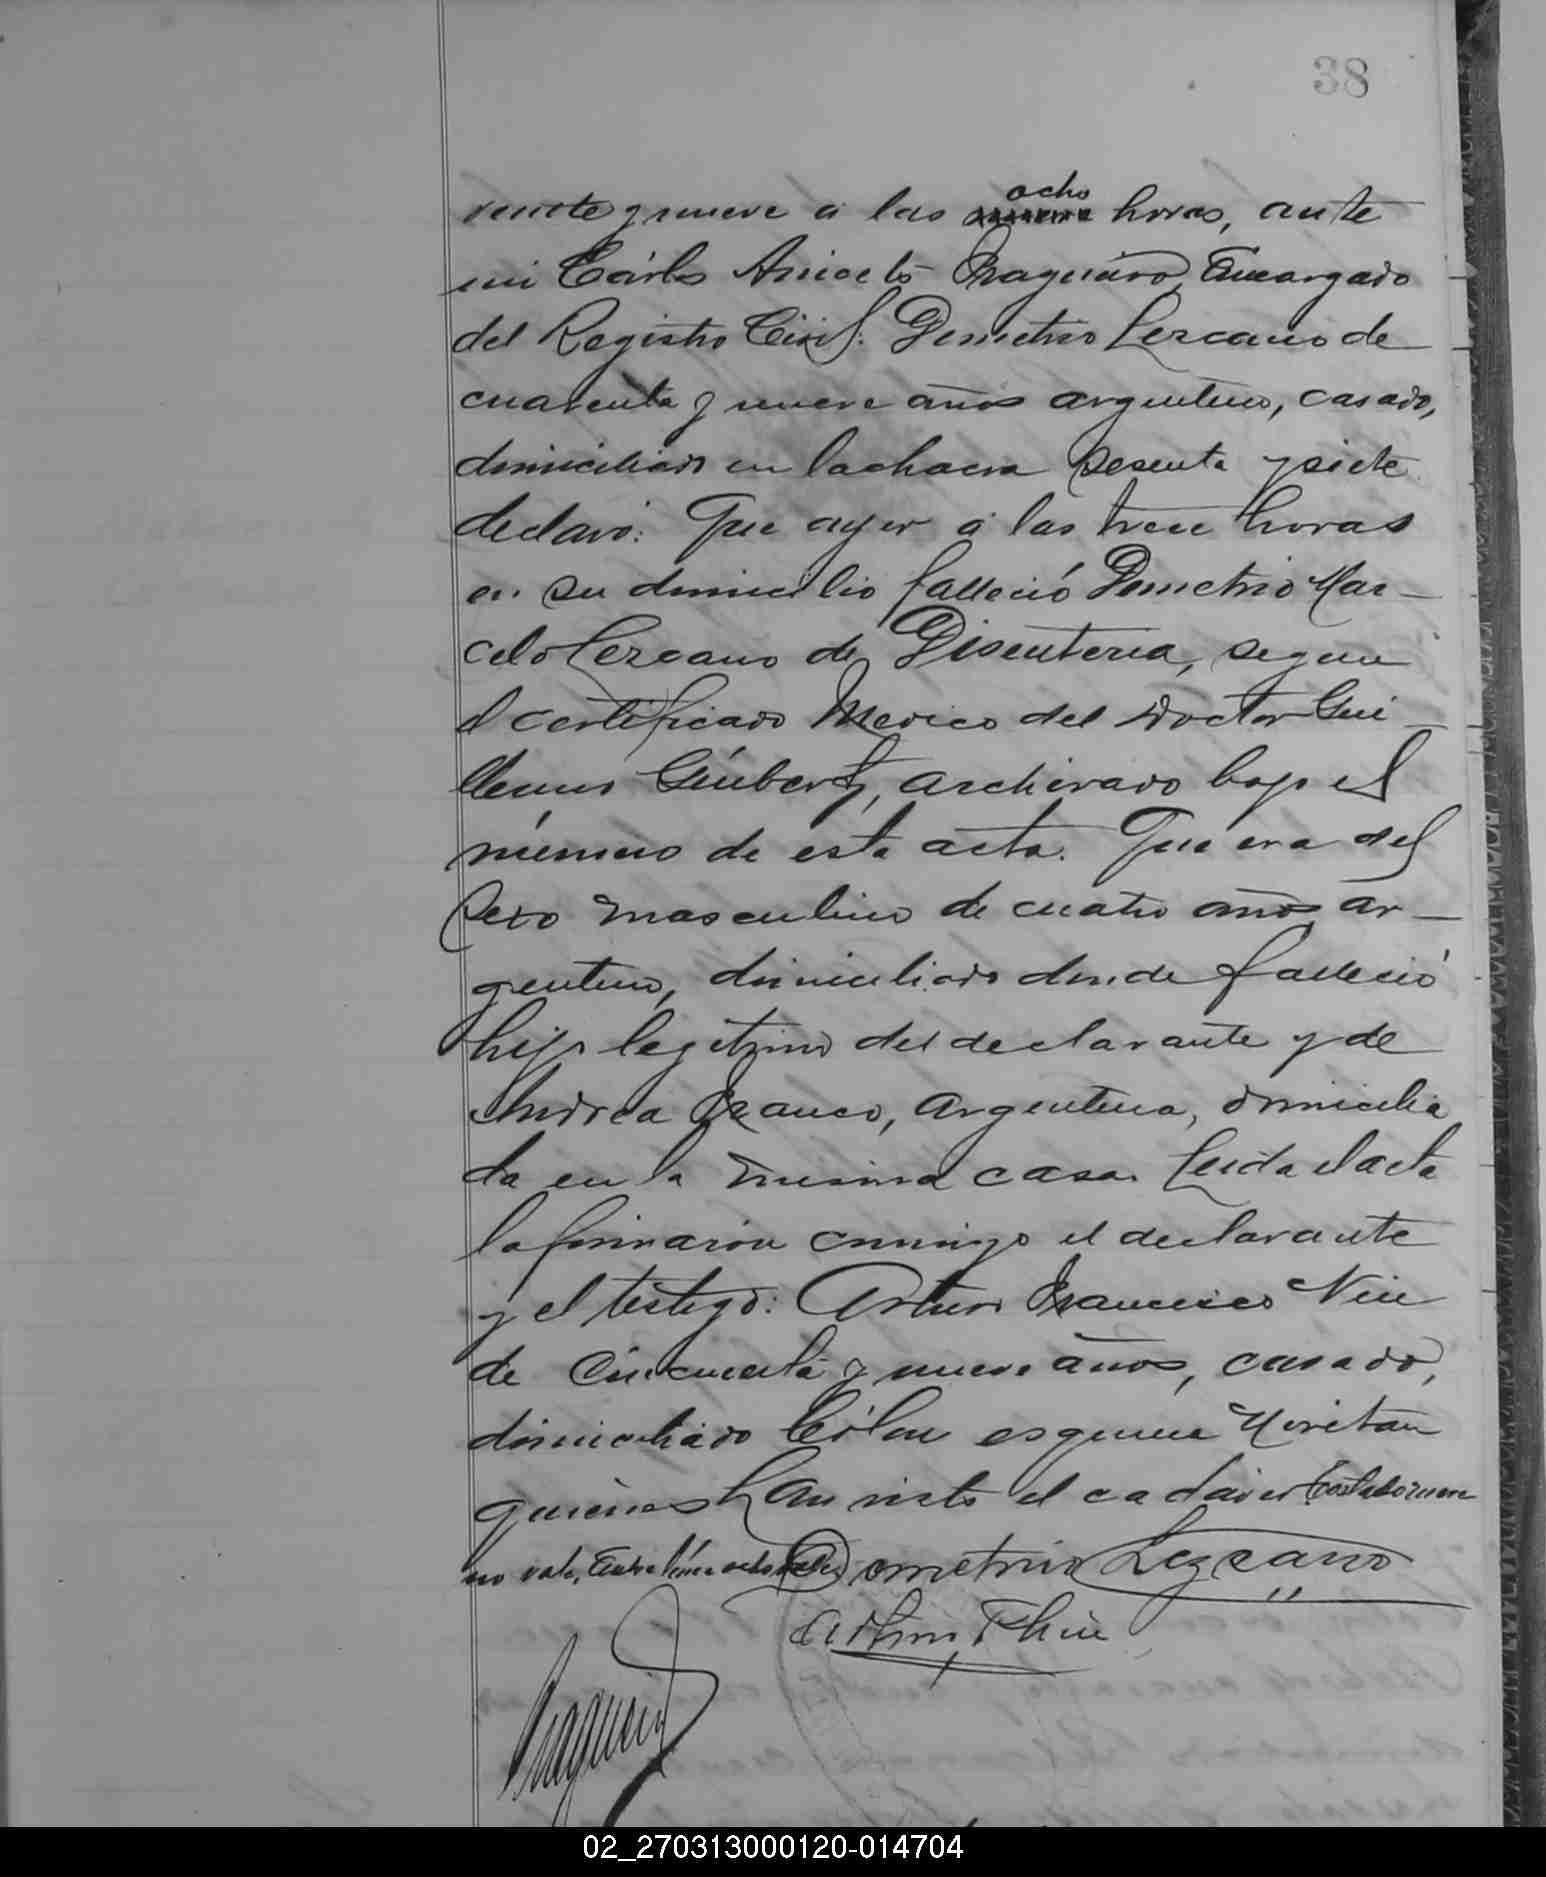 38
veinte y nueve a las ocho horas, ante
mi Cárlos Aniceto Fragueiro, Encargado
del Registro Civil: Demetrio Lezcano de
cuarenta y nueve años argentino, casado,
domiciliado en la chacra sesenta y siete
declaró: Que ayer a las trece horas
en su domicilio falleció Demetrio Mar-
celo Lezcano de Disenteria, segun
el certificado Medico del Doctor Gui-
llermo archivado bajo el
número de esta acta. Que era del
sexo masculino de cuatro años ar-
gentino, domiciliado donde falleció
hijo legitimo del declarante y de
Andrea Franco, argentina, domicilia
da en la misma casa. Leida el acta
la firmaron conmigo el declarante
y el testigo: Arturo Francisco
de cincuenta y nueve años, casado,
domiciliado Cólon esquina
quienes han visto el cadáver
no vale, Entre línea ocho vale. Demetrio Lezcano
Fragueiro
02_270313000120-014704